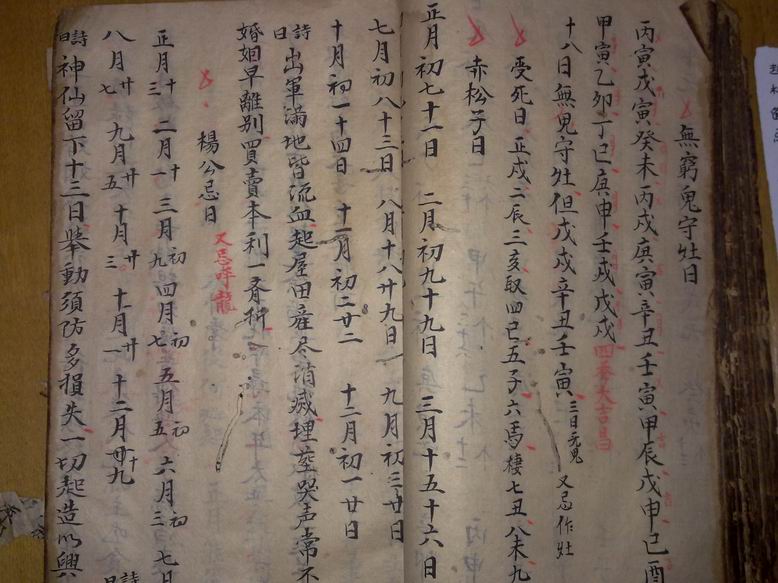 無窮鬼守灶日
丙寅戊寅癸未丙戌庚寅辛丑壬寅甲辰戊申己酉
甲寅乙卯丁巳庚申壬戌戊戌四季大吉昌
十八日無鬼守灶但戊戌辛丑壬寅三日无鬼 又忌作灶
受死日 正戌二辰三亥馭四巳五子六馬棲七丑八未九
赤松子日
正月初七十一日 二月初九十九日 三月十五十六日
七月初八十三日 八月十八廿九日 九月初三廿日
十月初一十四日 十一月初二廿二 十二月初一廿日
詩曰 出軍滿地皆流血起屋田產尽消滅埋葬哭声常不
婚姻早離别買賣本利一齊折
楊公忌日 又忌呼龍
正月十三 二月十一 三月初九 四月初七 五月初五 六月初三 七月
八月廿七 九月廿五 十月廿三 十一月廿一 十二月十九 詩曰
詩曰 神仙留下十三日举動須防多損失一切起造以興